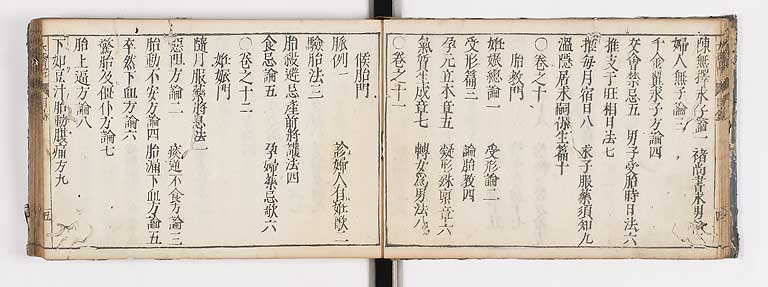 陳無擇求子論一　褚尚書求男論二
婦人無子論三
千金翼求子方論四
交會禁忌五　男子受胎時日法六
推支干旺相日法七
推每月宿日八　求子服藥須知九
溫隱居求嗣保生篇十
○卷之十
胎教門
妊娠總論一　受形論二
受形篇三　論胎教四
孕元立本章五　凝形殊稟章六
氣質生成章七　轉女爲男法八
○卷之十一
候胎門
脈例一　診婦人有妊歌二
驗胎法三
胎殺避忌產前將護法四
食忌論五　孕婦藥忌歌六
○卷之十二
妊娠門
隨月服藥將息法一
惡阻方論二　痰逆不食方論三
胎動不安方論四　胎漏下血方論五
卒然下血方論六
驚胎及僵仆方論七
胎上逼方論八
下如豆汁胎動腹痛方九